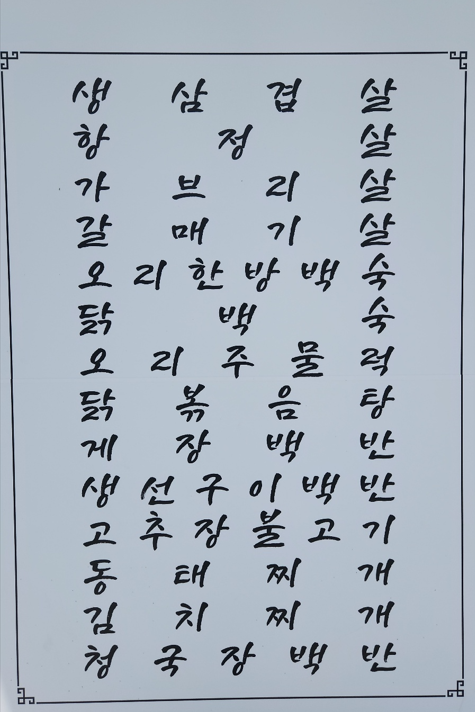 생삼겹살
항정살
가브리살
갈매기살
오리한방백숙
닭백숙
오리주물럭
닭볶음탕
게장백반
생선구이백반
고추장불고기
동태찌개
김치찌개
청국장백반